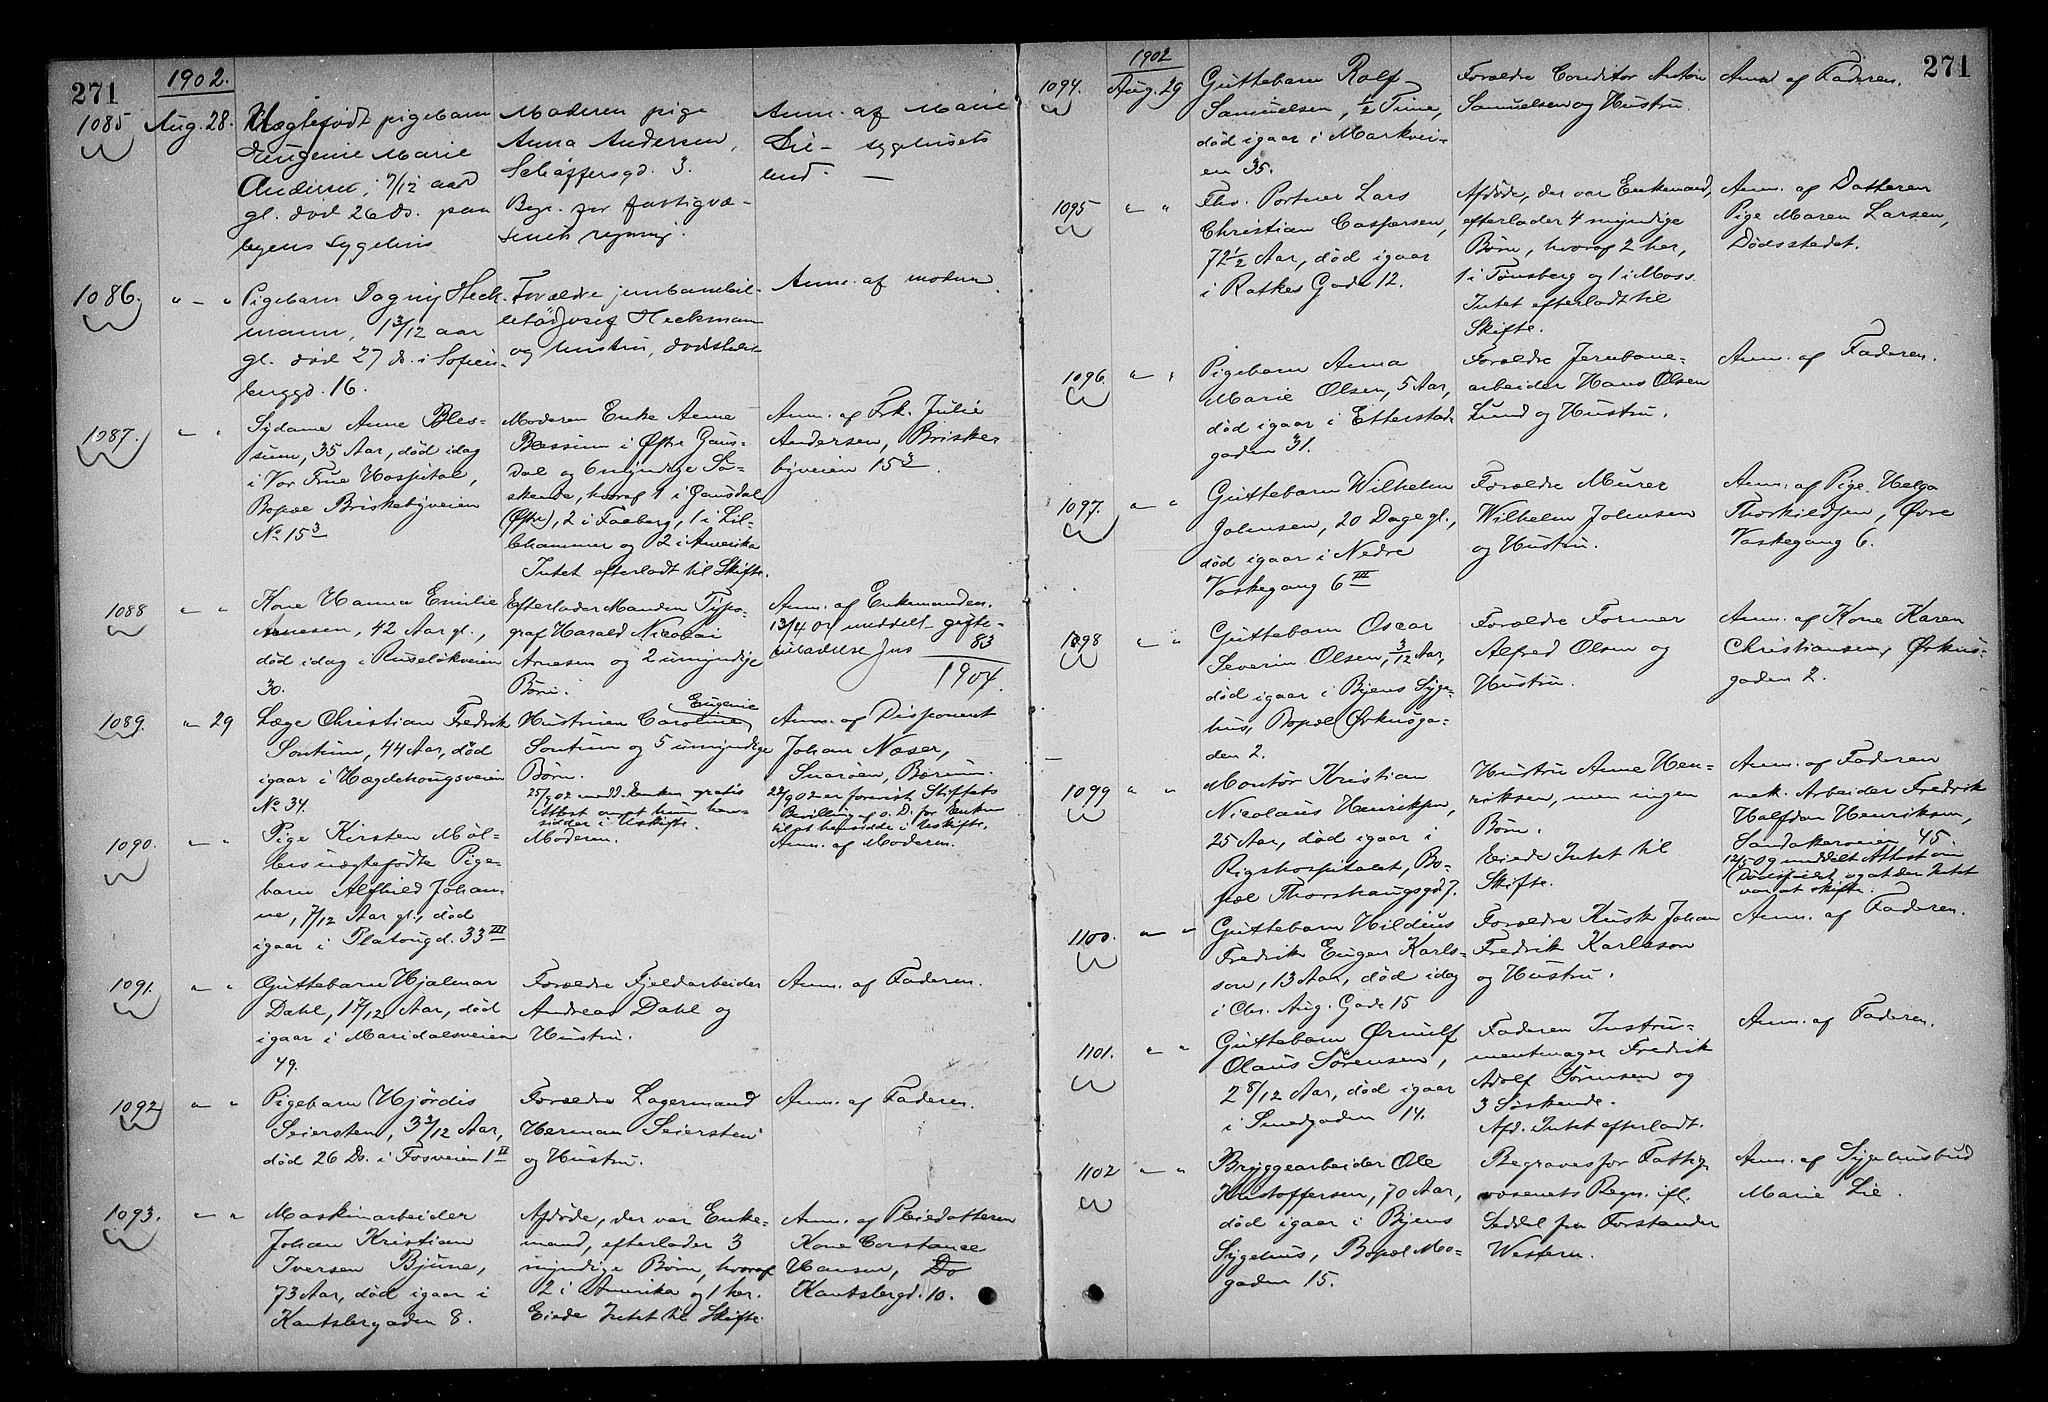 271
1902.
1085
Aug. 28.
Uægtefødt pigebarn
Eugenie Marie
Andersen, 7/12 aar
gl. død 26 ds. paa
byens Sygehus
Moderen pige
Anna Andersen,
Schäffersgd. 3.
Begr. for fattigvæ-
senets regning.
Anm. af Marie
Lie - sygehusets
bud. —
1086.
" - "
Pigebarn Dagny Heck-
mann, 1 3/12 aar
gl. død 27 ds. i Sofien-
berggd. 16.
Forældre
Josef Heckmann
og hustru, dødsstedet
Anm. af moderen
1087.
" "
Sydame Anne Bles-
sum, 35 Aar, død idag
i Vor Frue Hospital,
Bopæl Briskebyveien
No 15 3
Moderen Enke Anne
Blessum i Østre Gaus-
dal og 6 myndige Sø-
skende, hvoraf 1 i Gausdal
(Østre), 2 i Faaberg, 1 i Lil-
lehammer og 2 i Amerika
Intet efterladt til Skifte.
Anm. af Frk. Julie
Andersen, Briske-
byveien 15 3
1088
" "
Kone Hanna Emilie
Arnesen, 42 Aar gl.,
død idag i Ruseløkveien
30.
Efterlader Manden Typo-
graf Harald Nicolai
Arnesen og 2 umyndige
Børn.
Anm. af Enkemanden.
13/4 04 meddelt gifte-
83
1904.
1089.
" 29
Læge Christian Fredrik
Sontum, 44 Aar, død
igaar i Hægdehougsveien
No 34.
Eugenie
Hustruen Caroline
Sontum og 5 umyndige
Børn.
25/9 02 medd. Enken gratis
Attest om at hun hen-
sidder i Uskifte.
Anm. af Disponent
Johan Næser,
Snarøen, Bærum.
22/9 02 er forevist Stiftets
Bevilling af s. D. for Enken
til at hensidde i Uskifte.
1090.
" "
Pige Kirsten Møl-
lers uægtefødte Pige-
barn Alfhild Johan-
ne, 7/12 Aar gl., død
igaar i Platougd. 33 III
Moderen.
Anm. af Moderen.
1091.
" "
Guttebarn Hjalmar
Dahl, 1 7/12 Aar, død
igaar i Maridalsveien
49.
Forældre Fjeldarbeider
Andreas Dahl og
Hustru.
Anm. af Faderen.
1092
" "
Pigebarn Hjørdis
Seiersten, 3 3/12 Aar,
død 26 Ds. i Fosveien 1 II
Forældre Lagermand
Herman Seiersten
og Hustru.
Anm. af Faderen.
1093.
" "
Maskinarbeider
Johan Kristian
Iversen Bjune,
73 Aar, død igaar i
Kantslergaden 8.
Afdøde, der var Enke-
mand, efterlader 3
myndige Børn, hvoraf
2 i Amerika og 1 her.
Eiede Intet til Skifte.
Anm. af Pleiedatteren
Kone Constance
Hansen, Do
Kantslergd. 10.
271
1902
1094.
Aug. 29
Guttebarn Rolf
Samuelsen, 1/2 Time,
død igaar i Markvei-
en 35.
Forældre Conditor Anton
Samuelsen og Hustru.
Anm. af Faderen.
1095
" "
Fhv. Portner Lars
Christian Caspersen,
72 1/2 Aar, død igaar
i Ratkes Gade 12.
Afdøde, der var Enkemand,
efterlader 4 myndige
Børn, hvoraf 2 her,
1 i Tønsberg og 1 i Moss.
Intet efterladt til
Skifte.
Anm. af Datteren
Pige Maren Larsen,
Dødsstedet.
1096.
" "
Pigebarn Anna
Marie Olsen, 5 Aar,
død igaar i Etterstad-
gaden 31.
Forældre Jernbane-
arbeider Hans Olsen
Lund og Hustru.
Anm. af Faderen.
1097.
" "
Guttebarn Wilhelm
Johnsen, 20 Dage gl.,
død igaar i Nedre
Vaskegang 6 III
Forældre Murer
Wilhelm Johnsen
og Hustru.
Anm. af Pige Helga
Thorkildsen, Øvre
Vaskegang 6.
1098
" "
Guttebarn Oscar
Severin Olsen, 3/12 Aar,
død igaar i Byens Syge-
hus, Bopæl Ørknøga-
den 2.
Forældre Former
Alfred Olsen og
Hustru.
Anm. af Kone Karen
Christiansen, Ørknø-
gaden 2.
1099
" "
Montør Kristian
Nicolaus Henriksen,
25 Aar, død igaar i
Rigshospitalet, Bo-
pæl Thorshaugsgd 7.
Hustru Anne Hen-
riksen, men ingen
Børn.
Eiede Intet til
Skifte.
Anm. af Faderen
mek. Arbeider Fredrik
Halfdan Henriksen,
Sandakerveien 45.
12/5 09 meddelt Attest om
Dødsfald og at der Intet
var at skifte.
1100.
" "
Guttebarn Hildius
Fredrik Eugen Karls-
son, 13 Aar, død idag
i Chr. Aug. Gade 15
Forældre Kusk Johan
Fredrik Karlsson
og Hustru.
Anm. af Faderen.
1101.
" "
Guttebarn Ørnulf
Olaus Sørensen,
2 8/12 Aar, død igaar
i Smedgaden 14.
Faderen Instru-
mentmager Fredrik
Adolf Sørensen og
3 Søskende.
Afd. Intet efterladt.
Anm. af Faderen.
1102
" "
Bryggearbeider Ole
Kristoffersen, 70 Aar,
død igaar i Byens
Sygehus, Bopæl Mo-
gaden 15.
Begraves for Fattig-
væsenets Regn. ifl.
Seddel fra Forstander
Western.
Anm. af Sygehusbud
Marie Lie.